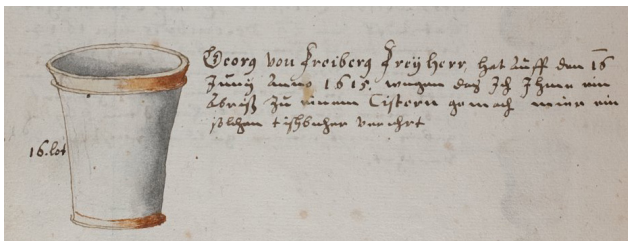 Georg von Freiberg Freÿ Herr, hat Auff den 16
Junij Anno 1615. wegen das Ich Ihme ein
Abriß zu einem Cistern gemach
solchen tischbecher verehrt
16. lot